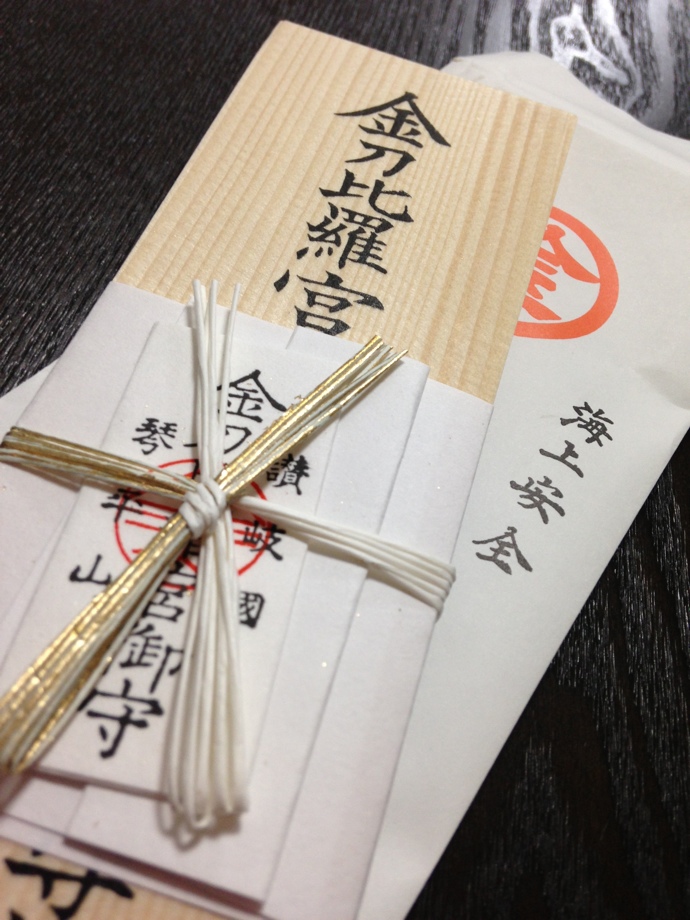 金刀比羅宮
讃岐國
金刀
宮御守
琴平山
金
海上安全
守